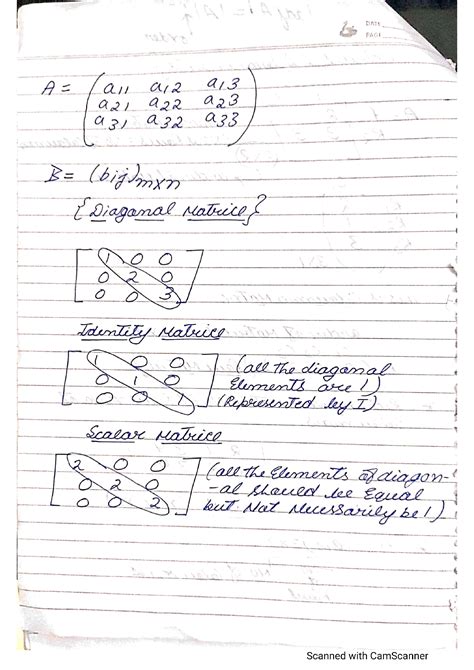 DATE
PAGE
A = ( a11 a12 a13
a21 a22 a23
a31 a32 a33 )
B = (bij)m×n
{Diaganal Matrice}
[ 1 0 0
0 2 0
0 0 3 ]
Identity Matrice
[ 1 0 0
0 1 0
0 0 1 ]
(all the diaganal
Elements are 1)
(Represented by I)
Scalar Matrice
[ 2 0 0
0 2 0
0 0 2 ]
(all the Elements of diagon-
-al should be Equal
but Not Necessarily be 1)
Scanned with CamScanner